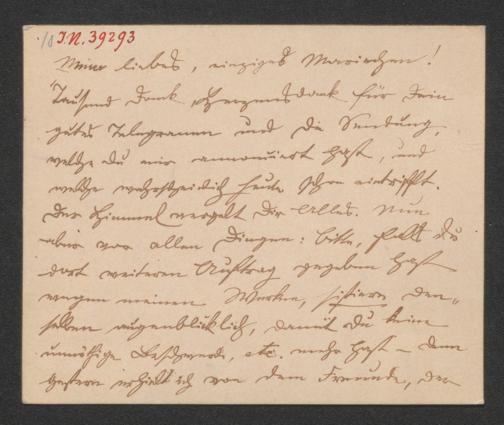 I.N. 39293
Mein liebes, einziges Mariechen!
Tausend Dank, Herzensdank für Dein
gutes Telegramm und die Sendung,
welche Du mir annonciert hast, und
welche wahrscheinlich heute schon eintrifft.
Der Himmel vergelt Dir Alles. Nun
aber vor allen Dingen: bitte, falls Du
dort weiteren Auftrag gegeben hast
wegen meinen Werken, sistiere den-
selben augenblicklich, damit Du keine
unnöthige Beschwerde, etc. mehr hast – denn
gestern erhielt ich von dem Freunde, der